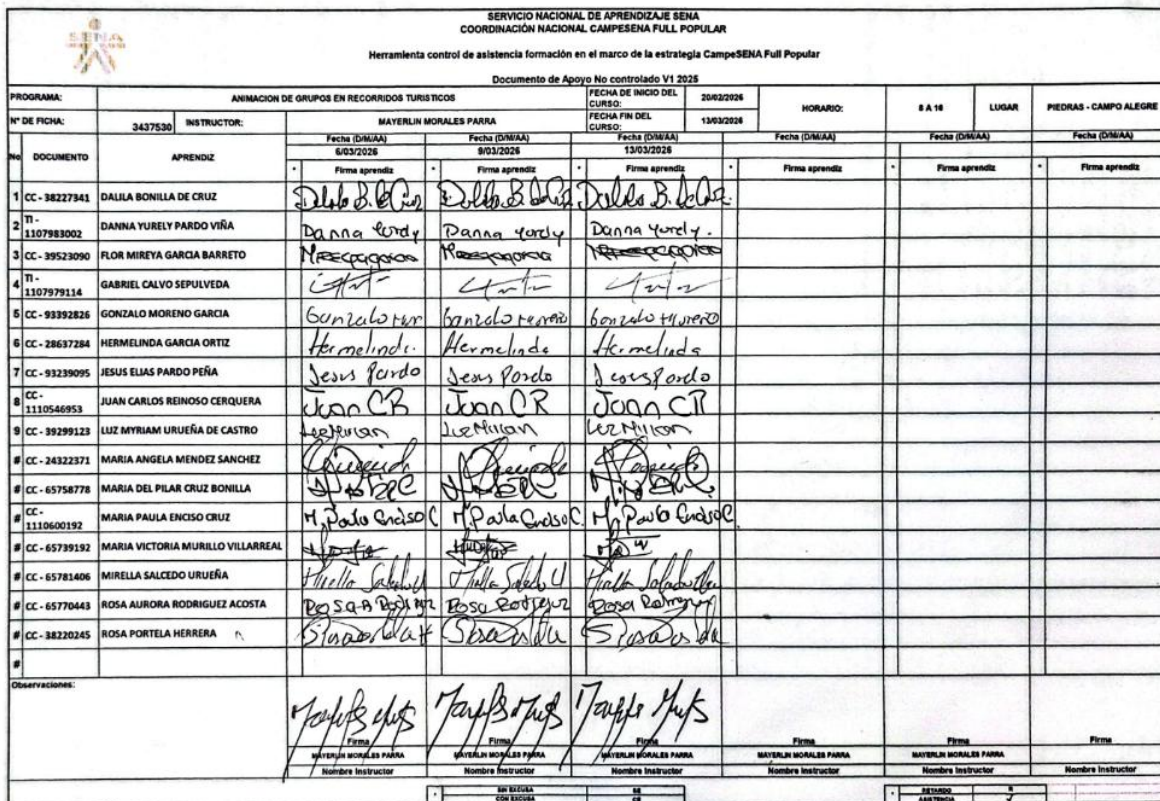 SENA
SERVICIO NACIONAL DE APRENDIZAJE SENA
COORDINACIÓN NACIONAL CAMPESENA FULL POPULAR
Herramienta control de asistencia formación en el marco de la estrategia CampeSENA Full Popular
Documento de Apoyo No controlado V1 2025
PROGRAMA: ANIMACION DE GRUPOS EN RECORRIDOS TURISTICOS FECHA DE INICIO DEL CURSO: 20/02/2026 HORARIO: 8 A 16 LUGAR PIEDRAS - CAMPO ALEGRE
N° DE FICHA: 3437530 INSTRUCTOR: MAYERLIN MORALES PARRA FECHA FIN DEL CURSO: 13/03/2026
No DOCUMENTO APRENDIZ Fecha (D/M/AA) Fecha (D/M/AA) Fecha (D/M/AA) Fecha (D/M/AA) Fecha (D/M/AA) Fecha (D/M/AA)
6/03/2026 9/03/2026 13/03/2026
* Firma aprendiz * Firma aprendiz * Firma aprendiz * Firma aprendiz * Firma aprendiz * Firma aprendiz
1 CC - 38227341 DALILA BONILLA DE CRUZ
2 TI - 1107983002 DANNA YURELY PARDO VIÑA Danna yurely Danna yurely Danna yurely.
3 CC - 39523090 FLOR MIREYA GARCIA BARRETO
4 TI - 1107979114 GABRIEL CALVO SEPULVEDA
5 CC - 93392826 GONZALO MORENO GARCIA Gonzalo Gonzalo moreno Gonzalo moreno
6 CC - 28637284 HERMELINDA GARCIA ORTIZ Hermelinda Hermelinda Hermelinda
7 CC - 93239095 JESUS ELIAS PARDO PEÑA Jesus Pardo Jesus Pardo Jesus Pardo
8 CC - 1110546953 JUAN CARLOS REINOSO CERQUERA Juan CR Juan CR Juan CR
9 CC - 39299123 LUZ MYRIAM URUEÑA DE CASTRO Luz Miriam Luz Miriam Luz Miriam
# CC - 24322371 MARIA ANGELA MENDEZ SANCHEZ
# CC - 65758778 MARIA DEL PILAR CRUZ BONILLA
# CC - 1110600192 MARIA PAULA ENCISO CRUZ M. Paula Enciso C M. Paula Enciso C. M. Paula Enciso C.
# CC - 65739192 MARIA VICTORIA MURILLO VILLARREAL
# CC - 65781406 MIRELLA SALCEDO URUEÑA Mirella Salcedo U Mirella Salcedo U Mirella Salcedo
# CC - 65770443 ROSA AURORA RODRIGUEZ ACOSTA Rosa A Rodriguez Rosa Rodriguez Rosa Rodriguez
# CC - 38220245 ROSA PORTELA HERRERA
#
Observaciones:
Firma Firma Firma Firma Firma Firma
MAYERLIN MORALES PARRA MAYERLIN MORALES PARRA MAYERLIN MORALES PARRA MAYERLIN MORALES PARRA MAYERLIN MORALES PARRA
Nombre Instructor Nombre Instructor Nombre Instructor Nombre Instructor Nombre Instructor Nombre Instructor
* SIN EXCUSA SE * RETARDO R
CON EXCUSA CE ASISTENCIA ✓